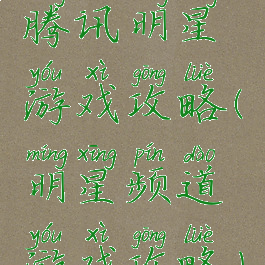 腾讯明星
yóu xì gōng lüè
游戏攻略(
míng xīng pín dào
明星频道
yóu xì gōng lüè
游戏攻略)